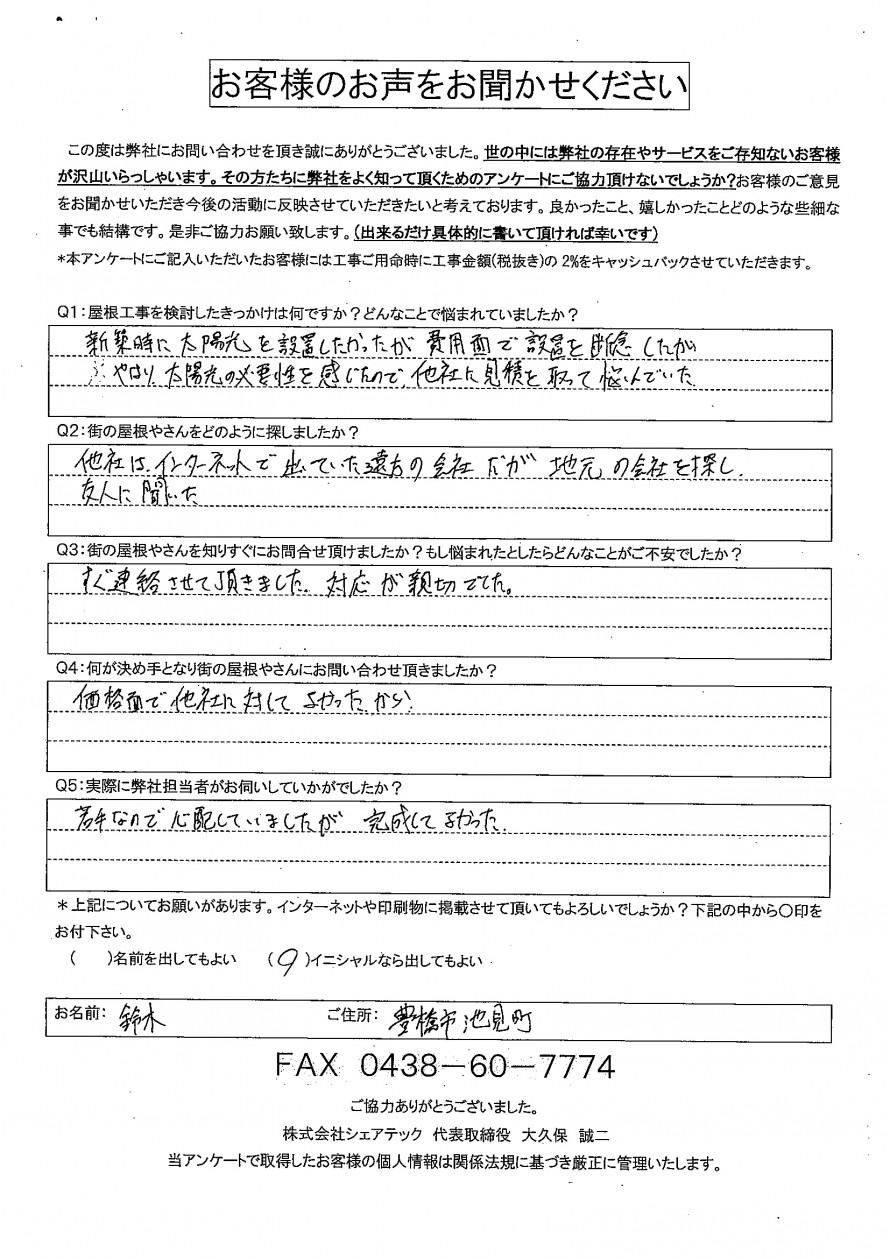 お客様のお声をお聞かせください
この度は弊社にお問い合わせを頂き誠にありがとうございました。世の中には弊社の存在やサービスをご存知ないお客様
が沢山いらっしゃいます。その方たちに弊社をよく知って頂くためのアンケートにご協力頂けないでしょうか?お客様のご意見
をお聞かせいただき今後の活動に反映させていただきたいと考えております。良かったこと、嬉しかったことどのような些細な
事でも結構です。是非ご協力お願い致します。(出来るだけ具体的に書いて頂ければ幸いです)
*本アンケートにご記入いただいたお客様には工事ご用命時に工事金額(税抜き)の 2%をキャッシュバックさせていただきます。
Q1:屋根工事を検討したきっかけは何ですか?どんなことで悩まれていましたか?
新築時に太陽光を設置したかったが 費用面で設置を断念したが
やはり太陽光の必要性を感じたので、他社に見積を取って悩んでいた
Q2:街の屋根やさんをどのように探しましたか?
他社は、インターネットで出ていた遠方の会社だが 地元の会社を探し、
友人に聞いた
Q3:街の屋根やさんを知りすぐにお問合せ頂けましたか?もし悩まれたとしたらどんなことがご不安でしたか?
すぐ連絡させて頂きました。対応が親切でした。
Q4:何が決め手となり街の屋根やさんにお問い合わせ頂きましたか?
価格面で他社に対してよかったから
Q5:実際に弊社担当者がお伺いしていかがでしたか?
若手なので心配していましたが 完成してよかった。
*上記についてお願いがあります。インターネットや印刷物に掲載させて頂いてもよろしいでしょうか?下記の中から〇印を
お付下さい。
( )名前を出してもよい (〇)イニシャルなら出してもよい
お名前: 鈴木 ご住所: 豊橋市池見町
FAX 0438-60-7774
ご協力ありがとうございました。
株式会社シェアテック 代表取締役 大久保 誠二
当アンケートで取得したお客様の個人情報は関係法規に基づき厳正に管理いたします。